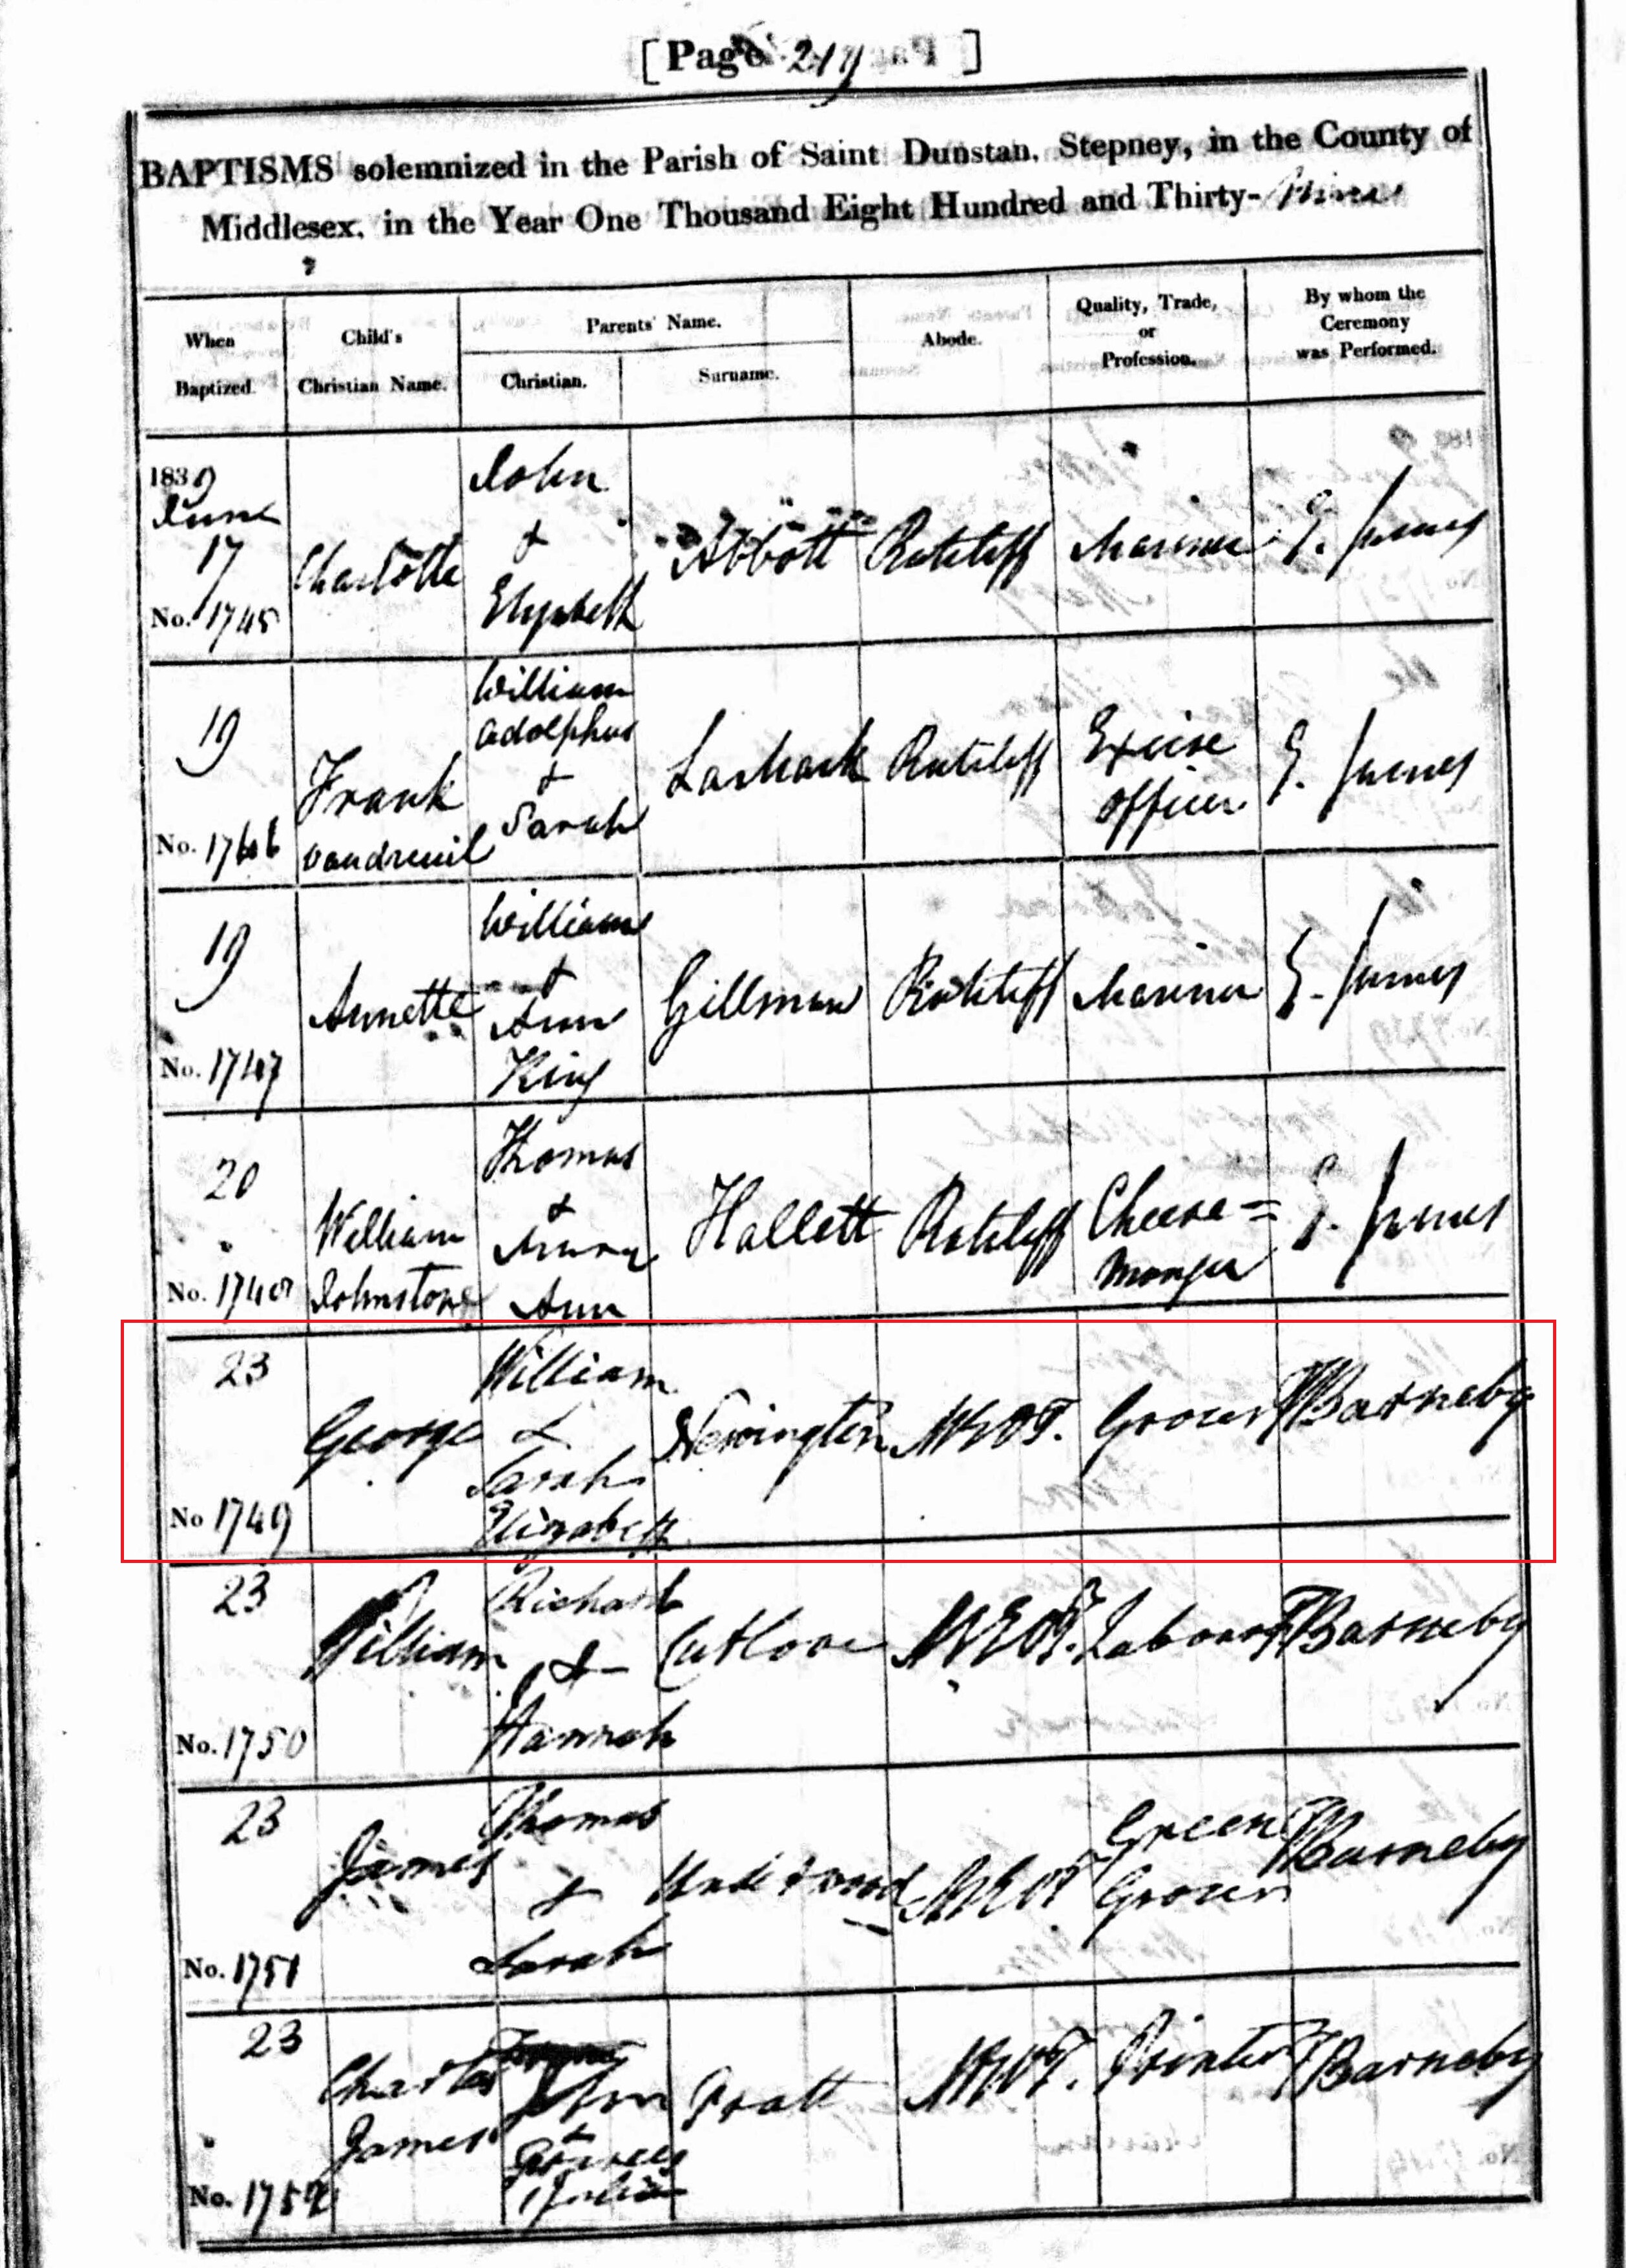 [Page 219]
BAPTISMS solemnized in the Parish of Saint Dunstan, Stepney, in the County of
Middlesex, in the Year One Thousand Eight Hundred and Thirty-Nine
When Baptized.
Child's Christian Name.
Parents' Name.
Christian.
Surname.
Abode.
Quality, Trade, or Profession.
By whom the Ceremony was Performed.
1839 June 17 No. 1745
Charlotte
John & Elizabeth
Abbott
Ratcliff
Mariner
E. James
19 No. 1746
Frank Vaudreuil
William Adolphus & Sarah
Ratcliff
Excise officer
E. James
19 No. 1747
Annette
William & Ann King
Gillman
Ratcliff
Mariner
E. James
20 No. 1748
William Johnstone
Thomas & Mary Ann
Hallett
Ratcliff
Cheese= Monger
E. James
23 No 1749
George
William & Sarah Elizabeth
Newington
MEOT.
Grocer
T Barneby
23 No. 1750
William
Richard & Hannah
MEOT.
Labourer
T Barneby
23 No. 1751
James
Thomas & Sarah
Underwood
MEOT
Green Grocer
T Barneby
23 No. 1752
Charles James
John & Julia
Pratt
MEOT.
Printer
T Barneby